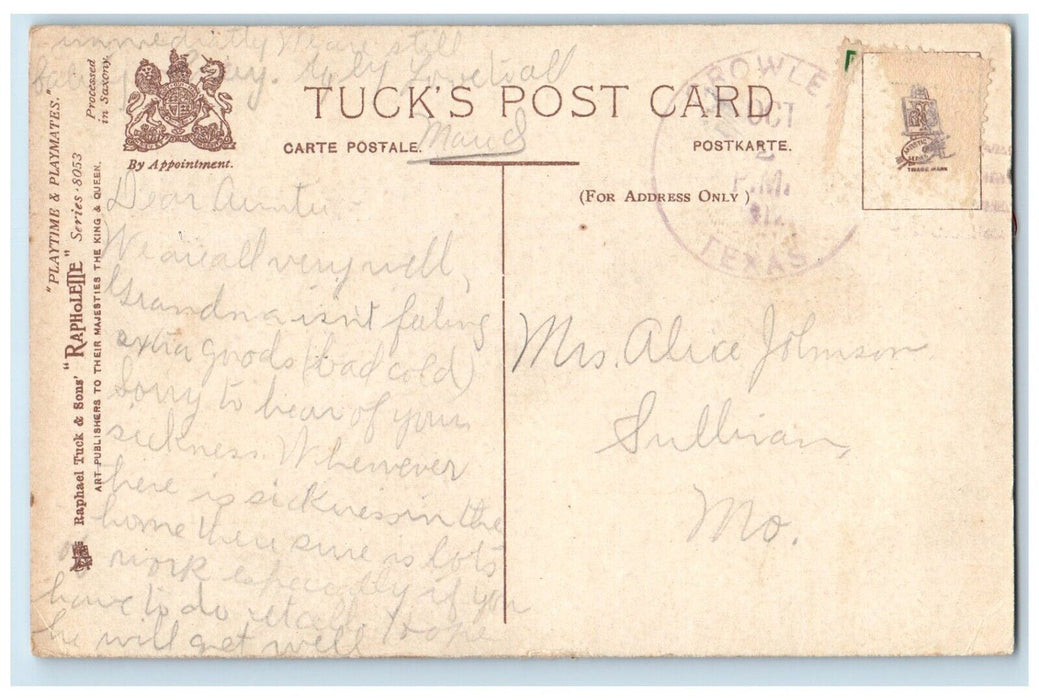 "PLAYTIME & PLAYMATES."
Processed in Saxony.
Raphael Tuck & Sons' "RAPHOLETTE" Series 8053
ART PUBLISHERS TO THEIR MAJESTIES THE KING & QUEEN.
By Appointment.
TUCK'S POST CARD
CARTE POSTALE.
POSTKARTE.
(FOR ADDRESS ONLY)
BOWIE
OCT
2
P.M.
TEXAS
TRADE MARK
Dear Auntie:
We are all very well,
Grandma isn't feeling
extra goods (bad cold)
Sorry to hear of your
sickness. Whenever
here is sickness in the
home there sure is lots
of work especially if you
have to do it all. Hope
he will get well
immediatly We are still
Love to all
Maud
Mrs. Alice Johnson
Sullivan,
Mo.